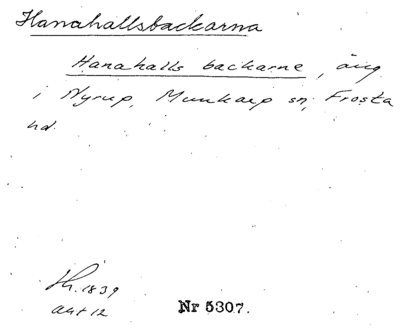 Hanahallsbackarna
Hanahalls backarne, äng
i Nyrup, Munkarp sn, Frosta
hd.
Sk. 1839
akt 12
Nr 5307.